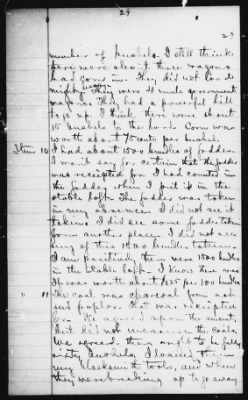 29
29
number of bushels. I still think
there were about three wagons
had gone in. They did not load
mighty heavy. They were 4 mule government
wagons. They had a powerful hill
to go up. I think there were about
15 bushels to the load. Corn was
worth about $ per bushel.
Item 10 I had about 1500 bundles of fodder
I won't say for certain that the fodder
was receipted for. I had counted in
the fodder when I put it in the
stable loft. The fodder was taken
in my absence. I did not see it
taken. I did see some fodder taken
from another place. I did not see
any of this 1500 bundles taken.
I am positive there were 1500 bundles
in the stable loft. I know there was
It was worth about $ per 100 bundles
" 11 This coal was charcoal from ash
and poplar. It was receipted
for. We agreed upon the amount,
but did not measure the coals.
We agreed there ought to be fully
sixty bushels. I loaned them
my blacksmith tools, and when
they were breaking up to go away